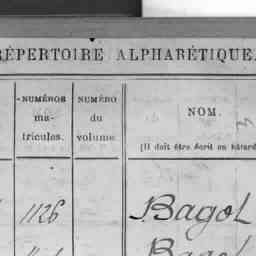 RÉPERTOIRE ALPHABÉTIQUE
NUMÉROS ma- tricules.
NUMÉRO du volume
NOM.
(Il doit être écrit en bâtard
1126 Bagot
Bagot